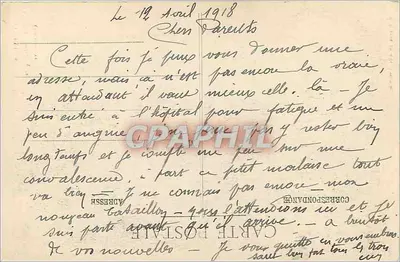 Le 12 Avril 1918
Chers Parents
Cette fois je peux vous donner une
adresse, mais ça n'est pas encore la vraie,
en attendant il vaut mieux celle-là - Je
suis entré à l'hôpital pour fatigue et un
peu d'angine je ne pense pas y rester bien
longtemps et je compte un peu sur une
convalescence, à part ce petit malaise tout
va bien - Je ne connais pas encore mon
nouveau bataillon - nous l'attendions ici et je
suis parti avant qu'il arrive - à bientôt
de vos nouvelles - Je vous quitte en vous embras
sant bien fort tous les trois
CPAPHIL.com
ADRESSE
CORRESPONDANCE
CARTE POSTALE